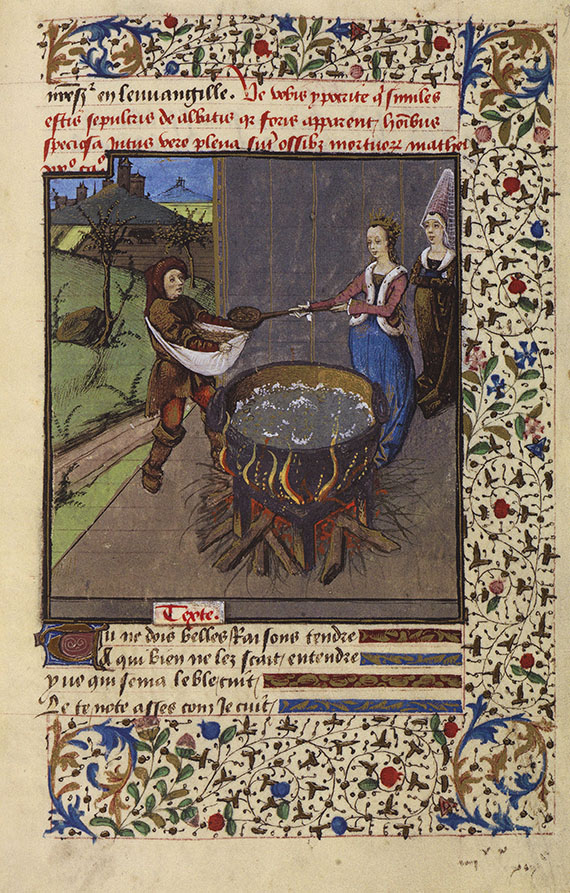 en leuuangille. Ve vobis ypocrite q̃ similes
estis sepulcris de albatis qr foris apparent hoĩbus
speciosa Intus vero plena sũt ossibz mortuorz mathei
Texte.
Tu ne dois belles Raisons tendre
A qui bien ne lez scait entendre
yno qui sema le ble cuit
De te note asses com Je cuit